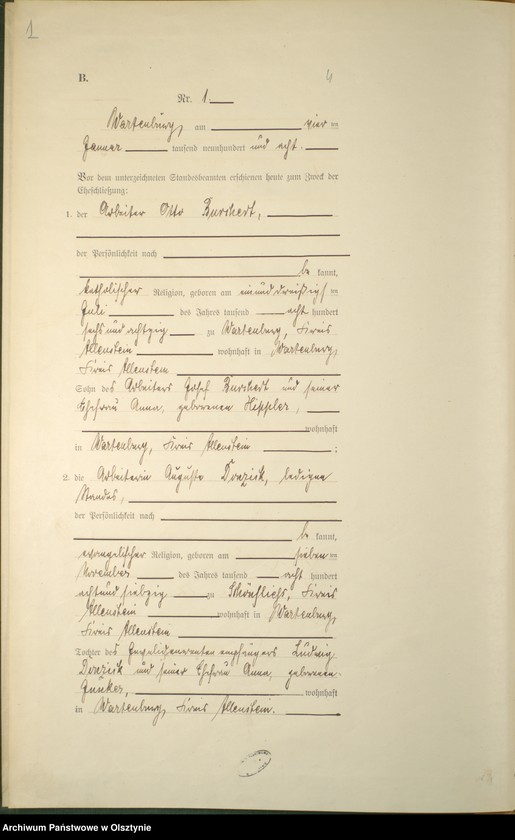 1
B.
4
Nr. 1
Wartenburg, am vier ten
Januar tausend neunhundert und acht.
Vor dem unterzeichneten Standesbeamten erschienen heute zum Zweck der
Eheschließung:
1. der Arbeiter Otto Burchert,
der Persönlichkeit nach
be kannt,
katholischer Religion, geboren am einunddreißigsten
Juli des Jahres tausend acht hundert
sechsundachtzig zu Wartenburg, Kreis
Allenstein wohnhaft in Wartenburg,
Kreis Allenstein
Sohn des Arbeiters Josef Burchert und seiner
Ehefrau Anna, geborenen Hippler,
wohnhaft
in Wartenburg, Kreis Allenstein ;
2. die Arbeiterin Auguste ledigen
Standes,
der Persönlichkeit nach
be kannt,
evangelischer Religion, geboren am sieben ten
November des Jahres tausend acht hundert
achtundsiebzig zu Kreis
Allenstein wohnhaft in Wartenburg,
Kreis Allenstein
Tochter des Invalidenrentenempfängers Ludwig
und seiner Ehefrau Anna, geborenen
wohnhaft
in Wartenburg, Kreis Allenstein.
Archiwum Państwowe w Olsztynie